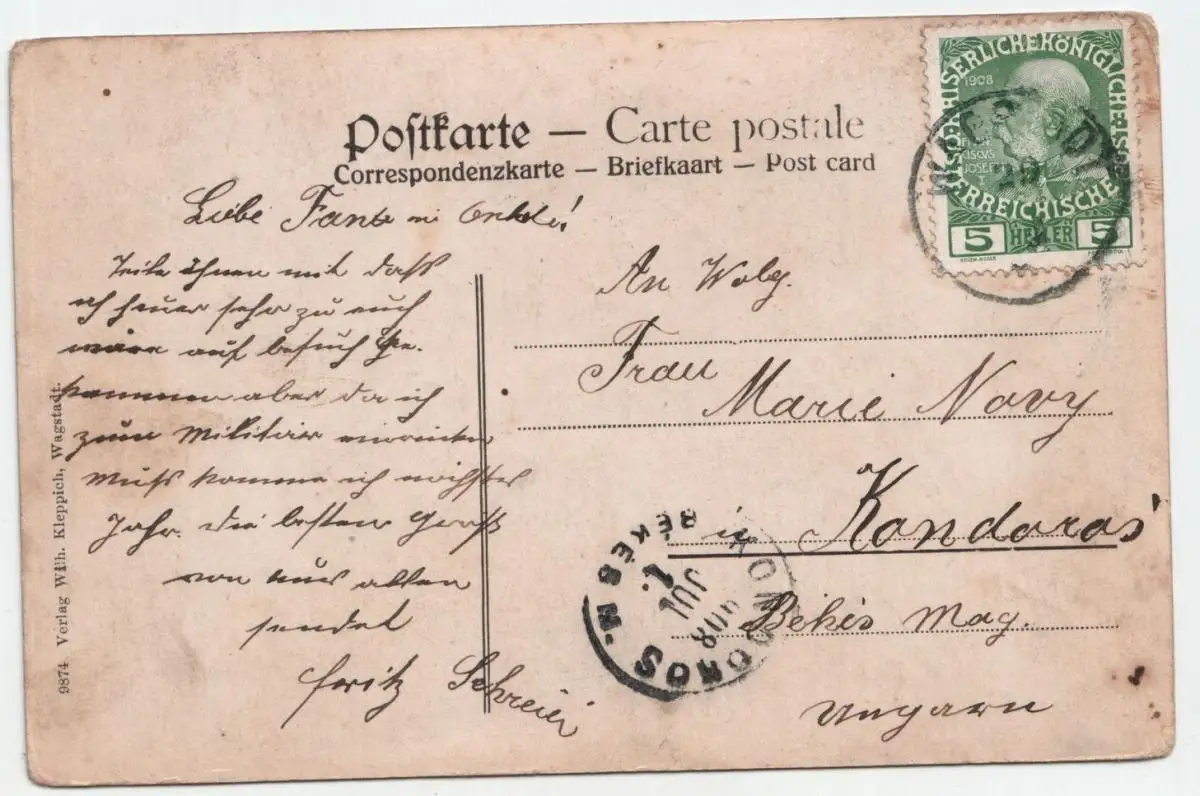 Postkarte — Carte postale
Correspondenzkarte — Briefkaart — Post card
KAISERLICHE KÖNIGLICHE
ÖSTERREICHISCHE
1908
FRAN
CISCVS
JOSEF
5 HELLER 5
Liebe Tante u Onkel!
Teile ihnen mit dass
ich heuer sehr zu euch
wäre auf besuch ge.
kommen aber da ich
zum Militär einrücken
muss komme ich nächstes
Jahr. Die besten Grüße
von uns allen
sendet
Fritz Schreier
An Wolg.
Frau
Marie Novy
in Kondoros
Békés Mag.
Ungarn
KONDOROS
BÉKÉS M.
1908
JUL
1.
9874 Verlag Wilh. Kleppich, Wagstadt.